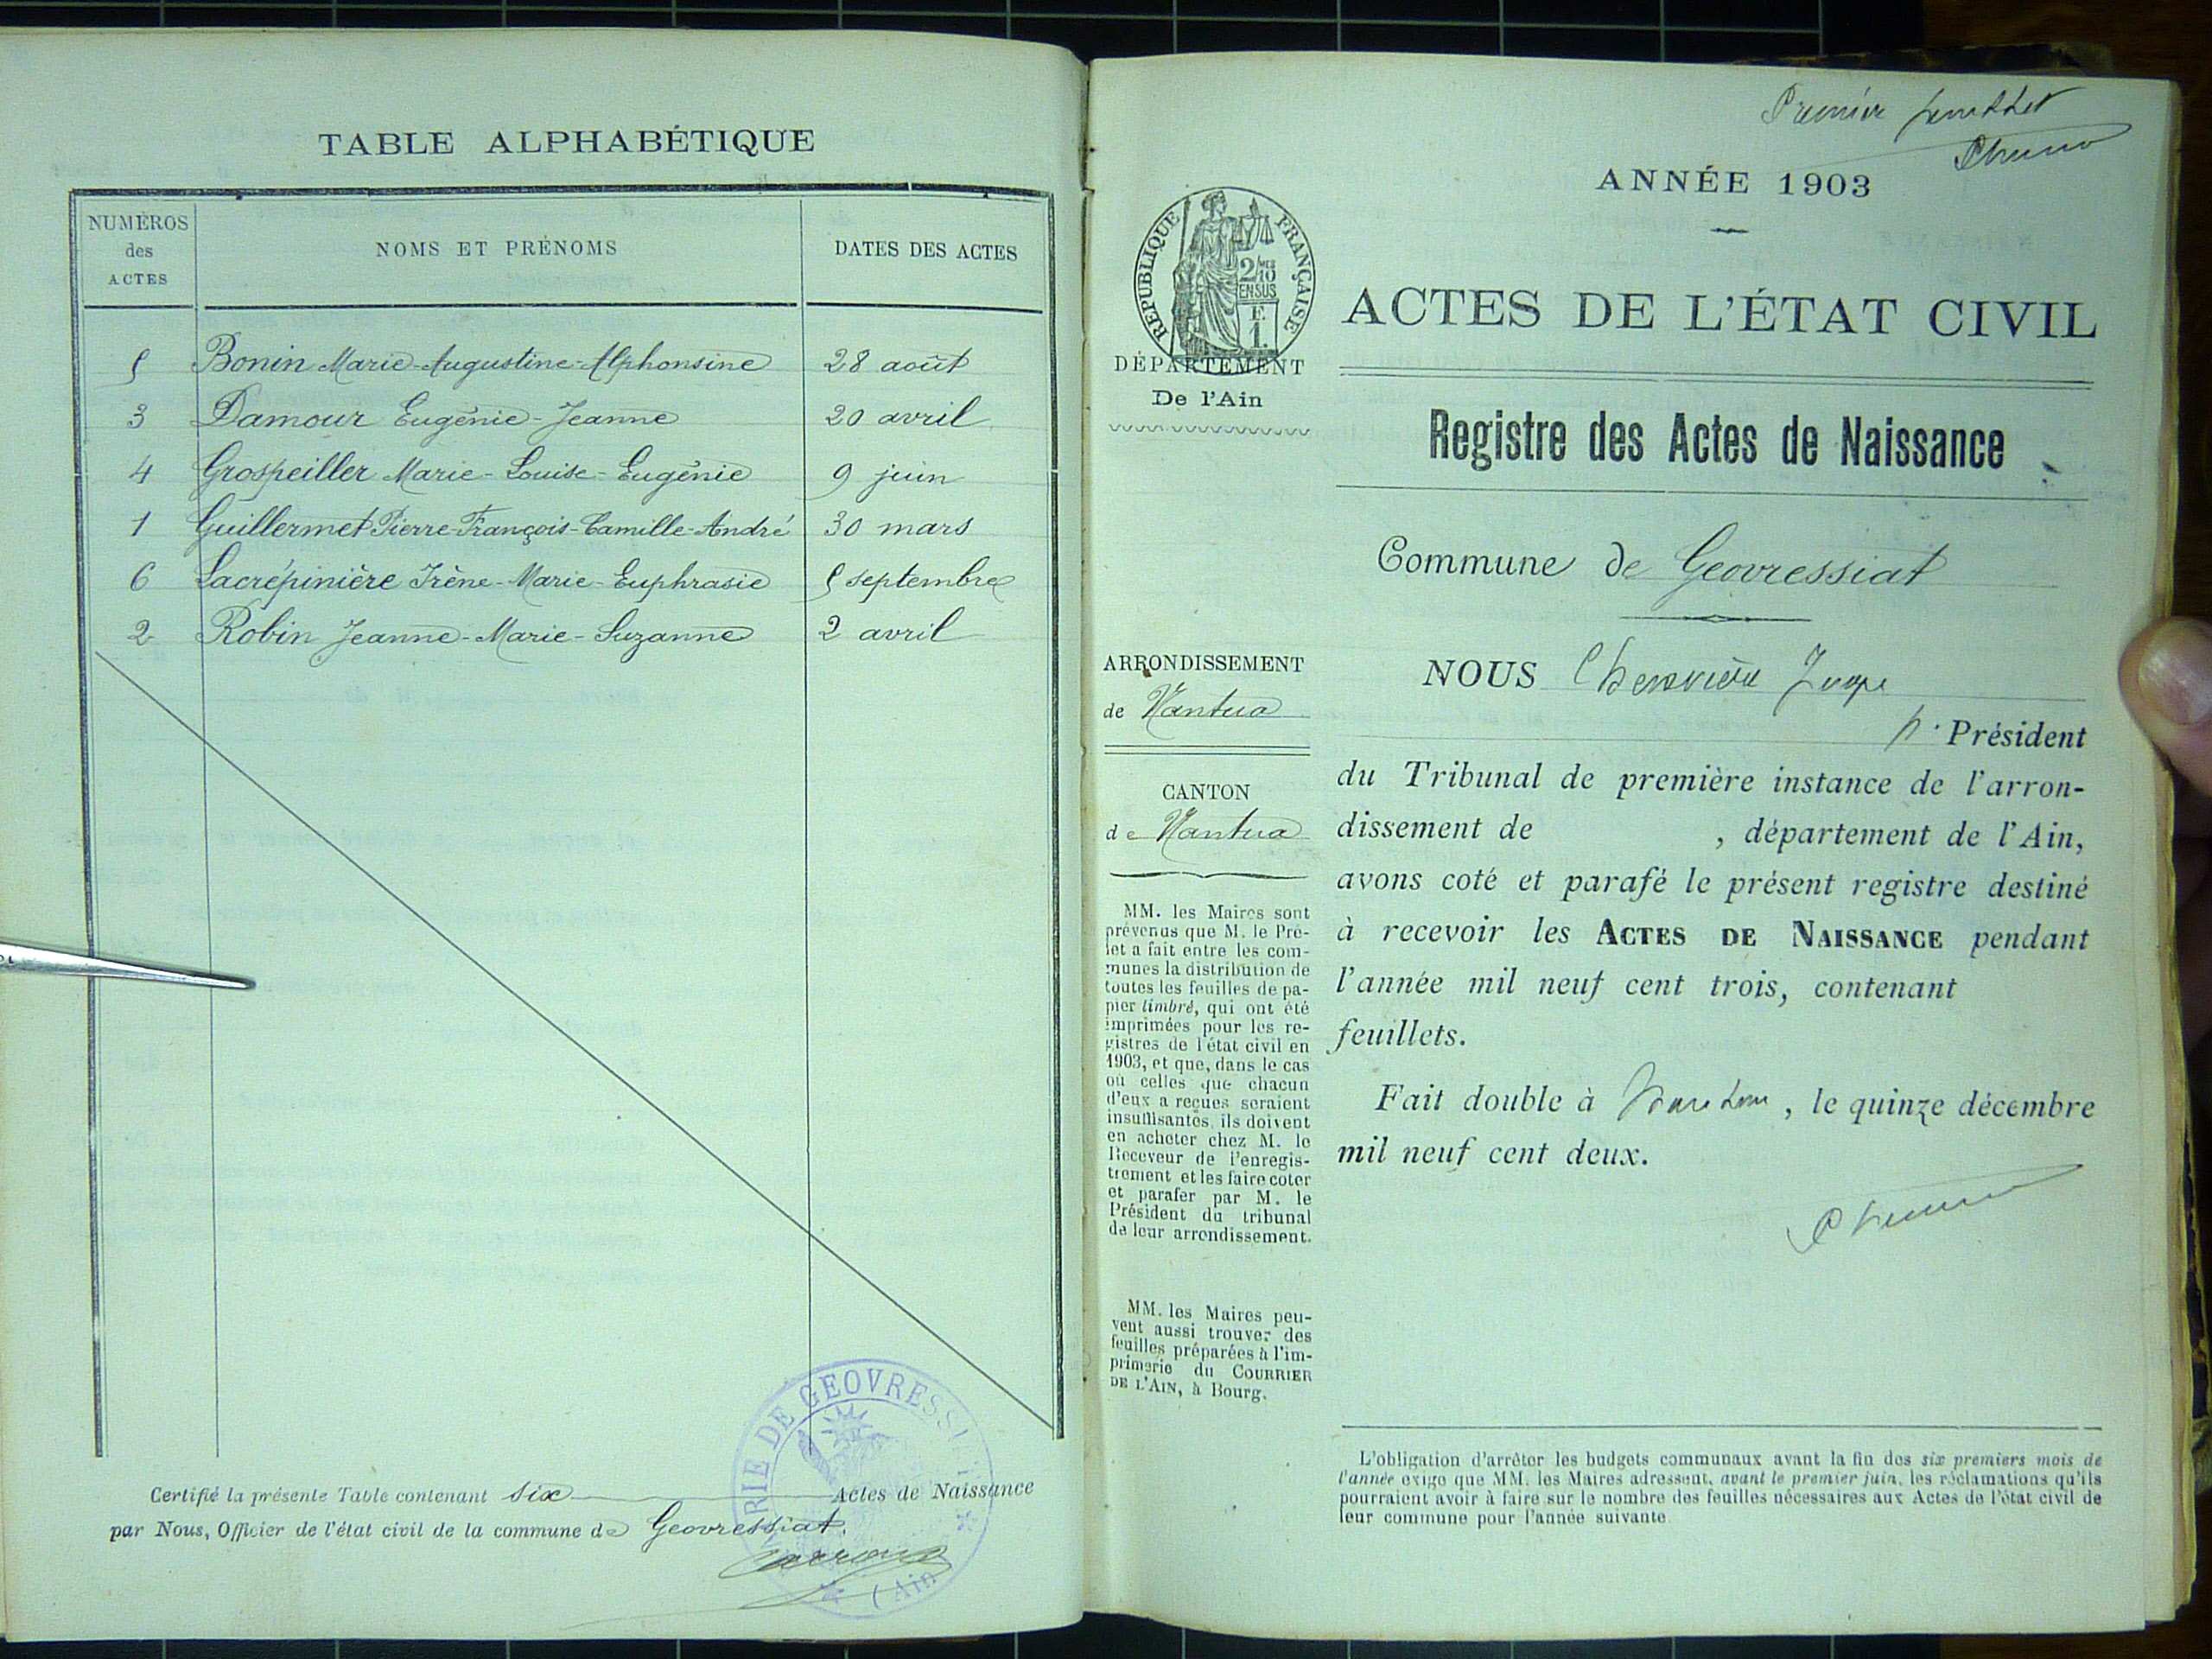 TABLE ALPHABÉTIQUE
NUMÉROS des ACTES
NOMS ET PRÉNOMS
DATES DES ACTES
5 Bonin Marie-Augustine-Alphonsine 28 août
3 Damour Eugénie-Jeanne 20 avril
4 Grospeiller Marie-Louise-Eugénie 9 juin
1 Guillermet Pierre-François-Camille-André 30 mars
6 Lacrépinière Irène-Marie-Euphrasie 5 septembre
2 Robin Jeanne-Marie-Suzanne 2 avril
Certifié la présente Table contenant six Actes de Naissance
par Nous, Officier de l'état civil de la commune de Geovressiat.
RIE DE GEOVRESSI
(Ain
Premier feuillet
ANNÉE 1903
RÉPUBLIQUE FRANÇAISE
2/10
EN SUS
F.
1.
ACTES DE L'ÉTAT CIVIL
DÉPARTEMENT
De l'Ain
Registre des Actes de Naissance
Commune de Geovressiat
ARRONDISSEMENT
de Nantua
CANTON
de Nantua
MM. les Maires sont
prévenus que M. le Pré-
fet a fait entre les com-
munes la distribution de
toutes les feuilles de pa-
pier timbré, qui ont été
imprimées pour les re-
gistres de l'état civil en
1903, et que, dans le cas
où celles que chacun
d'eux a reçues seraient
insuffisantes, ils doivent
en acheter chez M. le
Receveur de l'enregis-
trement et les faire coter
et parafer par M. le
Président du tribunal
de leur arrondissement.
MM. les Maires peu-
vent aussi trouver des
feuilles préparées à l'im-
primerie du COURRIER
DE L'AIN, à Bourg.
NOUS
Président
du Tribunal de première instance de l'arron-
dissement de , département de l'Ain,
avons coté et parafé le présent registre destiné
à recevoir les ACTES DE NAISSANCE pendant
l'année mil neuf cent trois, contenant
feuillets.
Fait double à Nantua, le quinze décembre
mil neuf cent deux.
L'obligation d'arrêter les budgets communaux avant la fin des six premiers mois de
l'année exige que MM. les Maires adressent, avant le premier juin, les réclamations qu'ils
pourraient avoir à faire sur le nombre des feuilles nécessaires aux Actes de l'état civil de
leur commune pour l'année suivante